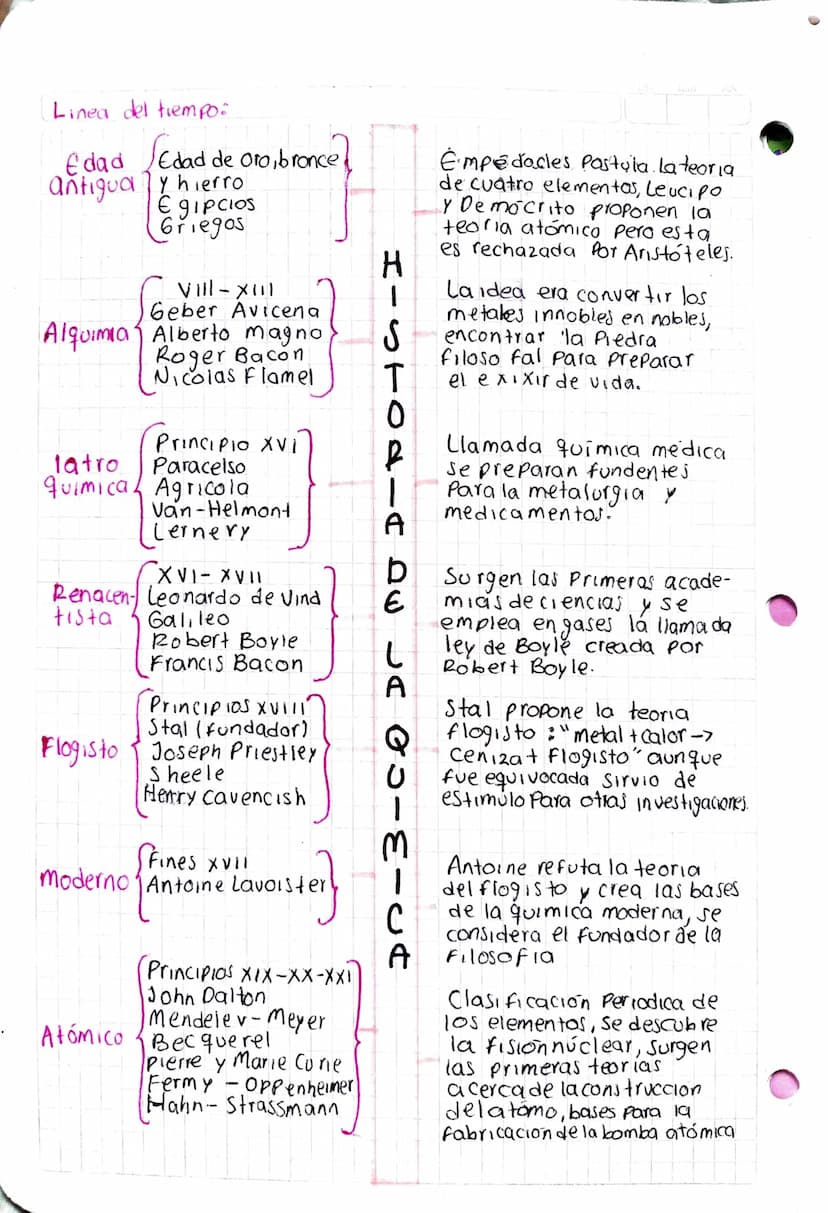 Linea del tiempo:
Edad
antigua
Edad de oro, bronce
y hierro
Egipcios
Griegos
Empédacles Pastula. la teoria
de cuatro elementos, Leucipo
y Demócrito proponen la
teoría atómico pero esta
es rechazada por Aristóteles.
Alquimia
VIII-XIII
Geber Avicena
Alberto magno
Roger Bacon
Nicolas Flamel
La idea era convertir los
metales innobles en nobles,
encontrar 'la Piedra
filoso fal para preparar
el exixir de vida.
Iatro
química
Principio XVI
Paracelso
Agricola
Van-Helmont
Lernery
Llamada química médica
se preparan fundentes
para la metalurgia y
medicamentos.
Renacen-
tista
XVI-XVII
Leonardo de Vind
Galileo
Robert Boyle
Francis Bacon
Surgen las Primeras acade-
mias de ciencias y se
emplea en gases la llamada
ley de Boyle creada por
Robert Boyle.
Flogisto
Principios XVIII
Stal (fundador)
Joseph Priestley
Sheele
Henry Cavencish
Stal propone la teoria
flogisto: "metal + calor ->
Ceniza + flogisto" aunque
fue equivocada sirvio de
estimulo para otras investigaciones.
Moderno
Fines XVII
Antoine Lavoister
Antoine refuta la teoria
del flogisto y crea las bases
de la química moderna, se
considera el fundador de la
Filosofia
Atómico
Principios XIX-XX-XXI
John Dalton
Mendelev-Meyer
Becquerel
Pierre y Marie Curie
Fermy - Oppenheimer
Hahn-Strassmann
Clasificación Periodica de
los elementos, se descubre
la fisión núclear, surgen
las primeras teorías
acerca de la construccion
del atómo, bases para la
fabricacion de la bomba atómica
HISTORIA DE LA QUIMICA